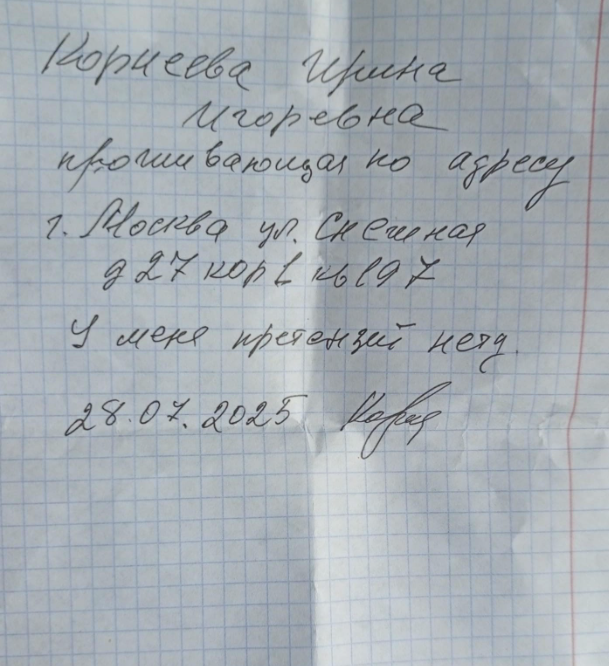 Корнеева Ирина
Игоревна
проживающая по адресу
г. Москва ул. Снежная
д 27 кор 1 кв 197
У меня претензий нету.
28.07.2025